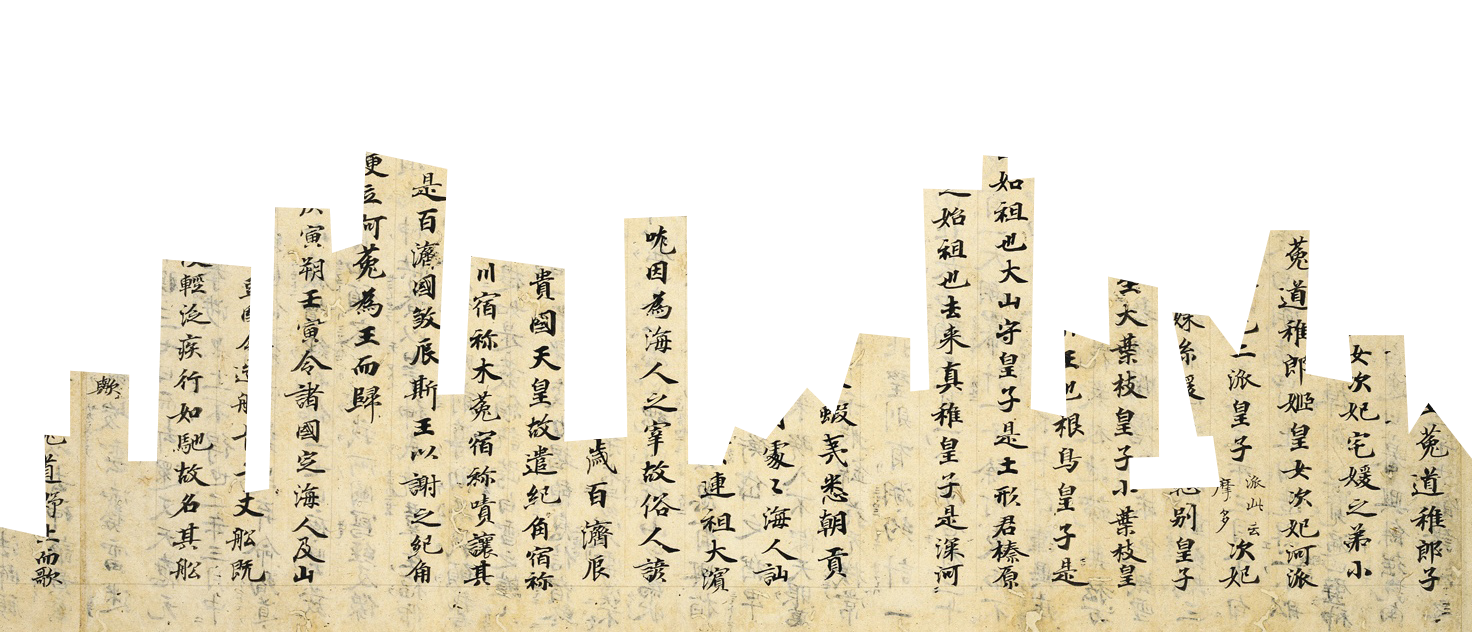 菟道稚郎子
女次妃宅媛之弟小
菟道稚郎姬皇女次妃河派
派皇子派此云摩多次妃
妹糸媛別皇子
大葉枝皇子小葉枝皇
王也根鳥皇子是
如祖也大山守皇子是土形君榛原
始祖也去来真稚皇子是深河
蝦夷悉朝貢
處々海人訕
連祖大濱
吠因為海人之宰故俗人諺
歳百濟辰
貴國天皇故遣紀角宿祢
川宿祢木菟宿祢嘖讓其
是百濟國敘辰斯王以謝之紀角
更立阿菟為王而歸
寅朔壬寅令諸國定海人及山
丈船既
輕泛疾行如馳故名其船
歟
道野上而歌